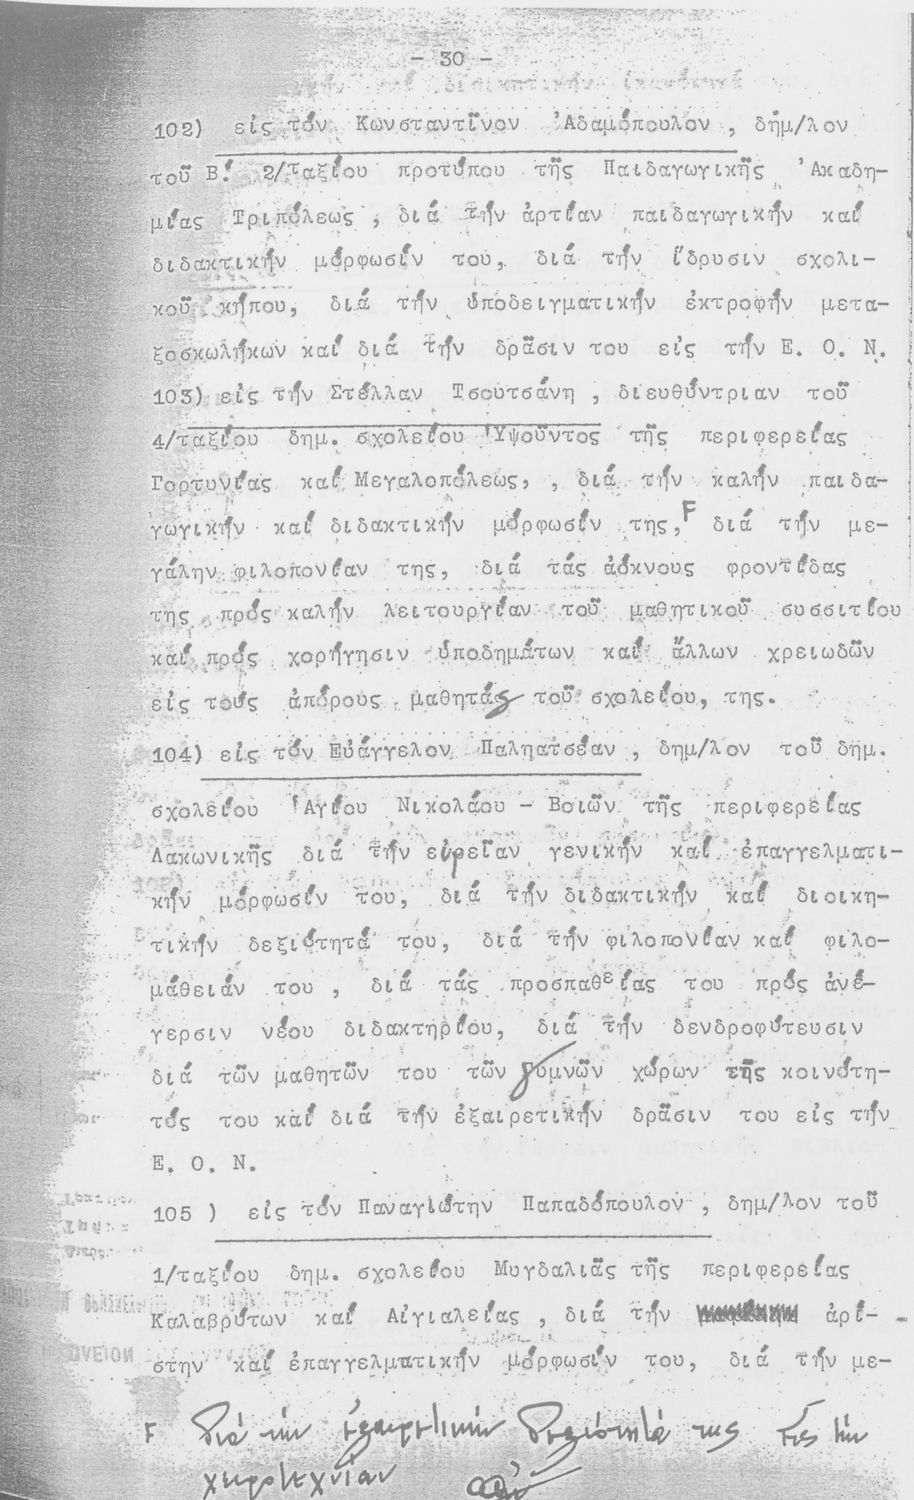 - 30 -
102) εἰς τόν Κωνσταντῖνον Ἀδαμόπουλον , δημ/λον
τοῦ Β! 2/ταξίου προτύπου τῆς Παιδαγωγικῆς Ἀκαδη-
μίας Τριπόλεως , διά τήν ἀρτίαν παιδαγωγικήν καί
διδακτικήν μόρφωσίν του, διά τήν ἵδρυσιν σχολι-
κοῦ κήπου, διά τήν ὑποδειγματικήν ἐκτροφήν μετα-
ξοσκωλήκων καί διά τήν δρᾶσιν του εἰς τήν Ε. Ο. Ν.
103) εἰς τήν Στέλλαν Τσουτσάνη , διευθύντριαν τοῦ
4/ταξίου δημ. σχολείου Ὑψοῦντος τῆς περιφερείας
Γορτυνίας καί Μεγαλοπόλεως, , διά τήν καλήν παιδα-
γωγικήν καί διδακτικήν μόρφωσίν της,F διά τήν με-
γάλην φιλοπονίαν της, διά τάς ἀόκνους φροντίδας
της πρός καλήν λειτουργίαν τοῦ μαθητικοῦ συσσιτίου
καί πρός χορήγησιν ὑποδημάτων καί ἄλλων χρειωδῶν
εἰς τούς ἀπόρους μαθητάς τοῦ σχολείου, της.
104) εἰς τόν Εὐάγγελον Παληατσέαν , δημ/λον τοῦ δημ.
σχολείου Ἁγίου Νικολάου - Βοιῶν τῆς περιφερείας
Λακωνικῆς διά τήν εὐρεῖαν γενικήν καί ἐπαγγελματι-
κήν μόρφωσίν του, διά τήν διδακτικήν καί διοικη-
τικήν δεξιότητά του, διά τήν φιλοπονίαν καί φιλο-
μάθειάν του , διά τάς προσπαθείας του πρός ἀνέ-
γερσιν νέου διδακτηρίου, διά τήν δενδροφύτευσιν
διά τῶν μαθητῶν του τῶν γυμνῶν χώρων τῆς κοινότη-
τός του καί διά τήν ἐξαιρετικήν δρᾶσιν του εἰς τήν
Ε. Ο. Ν.
105 ) εἰς τόν Παναγιώτην Παπαδόπουλον , δημ/λον τοῦ
1/ταξίου δημ. σχολείου Μυγδαλιᾶς τῆς περιφερείας
Καλαβρύτων καί Αἰγιαλείας , διά τήν ἀρί-
στην καί ἐπαγγελματικήν μόρφωσίν του, διά τήν με-
F διά τήν ἐξαιρετικήν δεξιότητά της εἰς τήν
χειροτεχνίαν